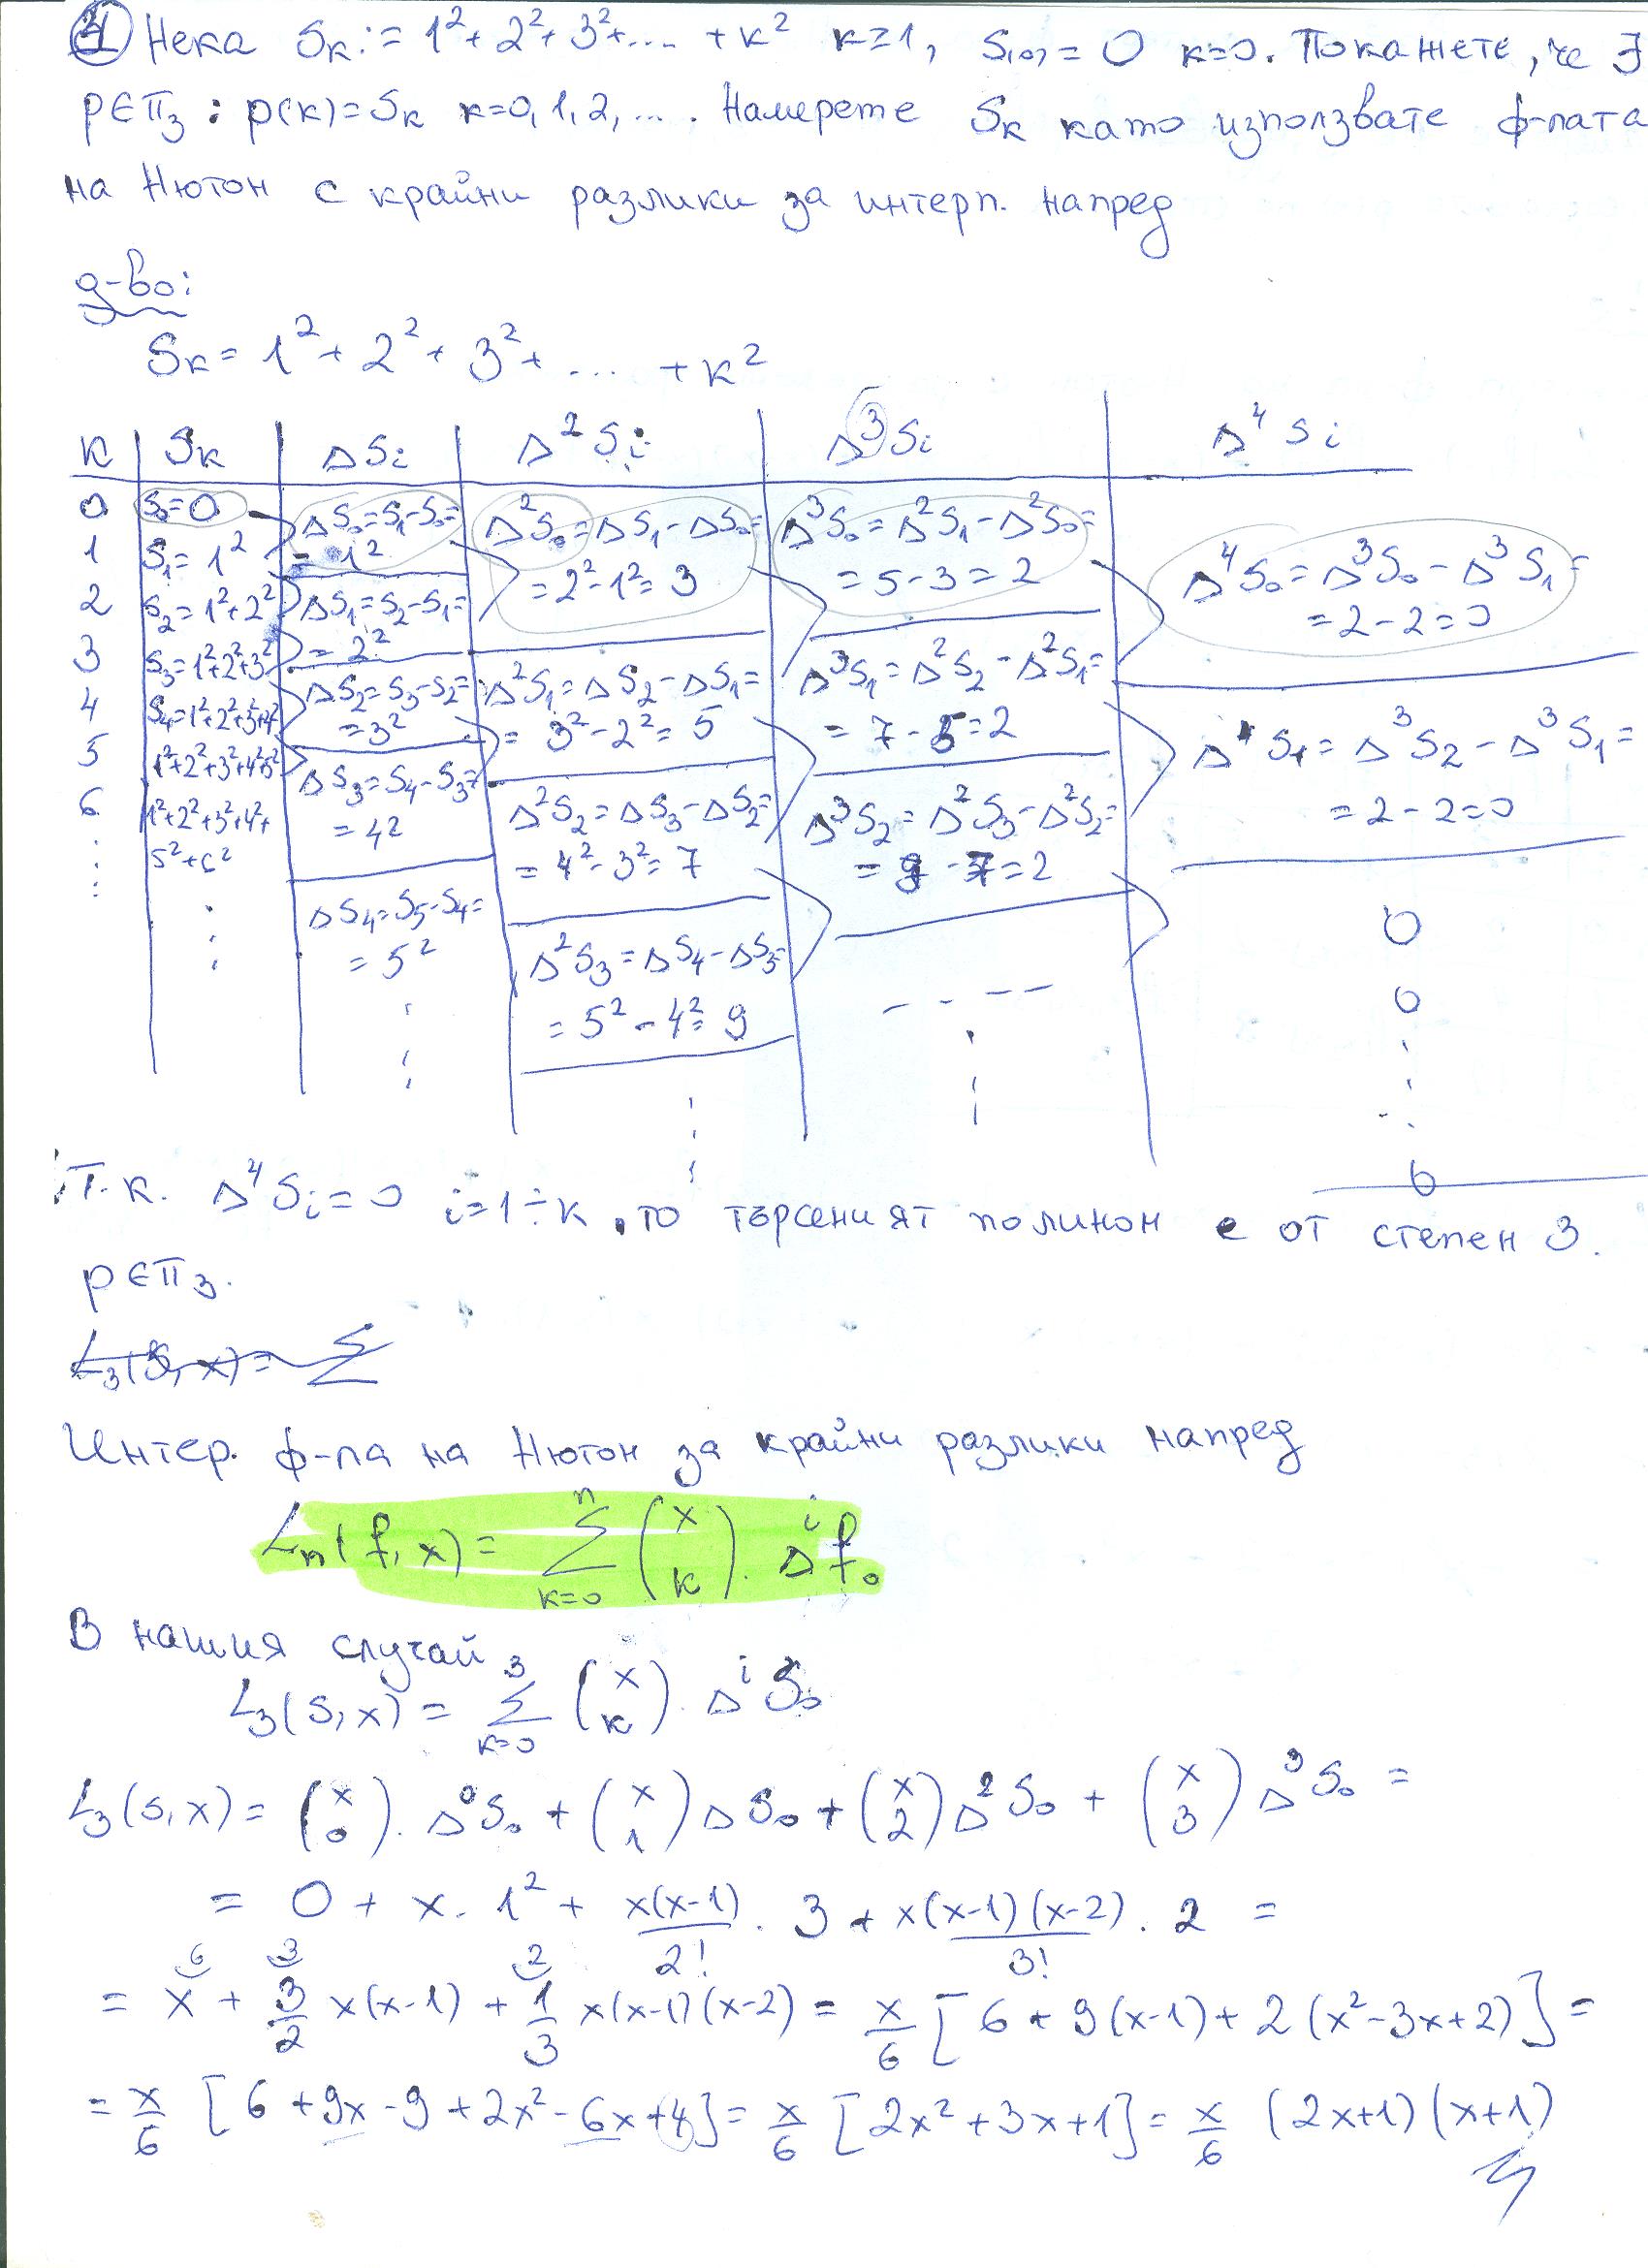 21 Нека Sк := 1² + 2² + 3² + ... + к² к≥1, S(0) = 0 к=0. Покажете, че ∃
p∈π₃ : p(к) = Sк к=0, 1, 2, ... . Намерете Sк като използвате ф-лата
на Нютон с крайни разлики за интерп. напред
д-во:
Sк = 1² + 2² + 3² + ... + к²
к | Sк | ΔSi | Δ²Si | Δ³Si | Δ⁴Si
0 | S₀ = 0 | ΔS₀ = S₁ - S₀ = = 1² | Δ²S₀ = ΔS₁ - ΔS₀ = = 2² - 1² = 3 | Δ³S₀ = Δ²S₁ - Δ²S₀ = = 5 - 3 = 2 | Δ⁴S₀ = Δ³S₀ - Δ³S₁ = = 2 - 2 = 0
1 | S₁ = 1² | ΔS₁ = S₂ - S₁ = = 2² | Δ²S₁ = ΔS₂ - ΔS₁ = = 3² - 2² = 5 | Δ³S₁ = Δ²S₂ - Δ²S₁ = = 7 - 5 = 2 | Δ⁴S₁ = Δ³S₂ - Δ³S₁ = = 2 - 2 = 0
2 | S₂ = 1² + 2² | ΔS₂ = S₃ - S₂ = = 3² | Δ²S₂ = ΔS₃ - ΔS₂ = = 4² - 3² = 7 | Δ³S₂ = Δ²S₃ - Δ²S₂ = = 9 - 7 = 2 | 0
3 | S₃ = 1² + 2² + 3² | ΔS₃ = S₄ - S₃ = = 4² | Δ²S₃ = ΔS₄ - ΔS₃ = = 5² - 4² = 9 | - - - - | 0
4 | S₄ = 1² + 2² + 3² + 4² | ΔS₄ = S₅ - S₄ = = 5² | ⋮ | ⋮ | ⋮
5 | 1² + 2² + 3² + 4² + 5² | ⋮ | | | 0
6 | 1² + 2² + 3² + 4² + 5² + 6²
⋮ | ⋮
Т.к. Δ⁴Si = 0 i = 1÷к, то търсеният полином е от степен 3.
p∈π₃.
L₃(S, x) = Σ
Интер. ф-ла на Нютон за крайни разлики напред
Lₙ(f, x) = Σ_{к=0}^{n} (x к) . Δⁱf₀
В нашия случай
L₃(S, x) = Σ_{к=0}^{3} (x к) . ΔⁱS₀
L₃(S, x) = (x 0) . Δ⁰S₀ + (x 1) ΔS₀ + (x 2) Δ²S₀ + (x 3) Δ³S₀ =
= 0 + x . 1² + x(x-1)/2! . 3 + x(x-1)(x-2)/3! . 2 =
6 3 2
= x + 3/2 x(x-1) + 1/3 x(x-1)(x-2) = x/6 [6 + 9(x-1) + 2(x² - 3x + 2)] =
= x/6 [6 + 9x - 9 + 2x² - 6x + 4] = x/6 [2x² + 3x + 1] = x/6 (2x+1)(x+1)